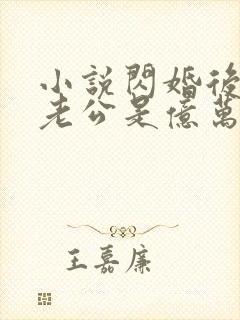 小說閃婚後
老公是億萬
王嘉廉